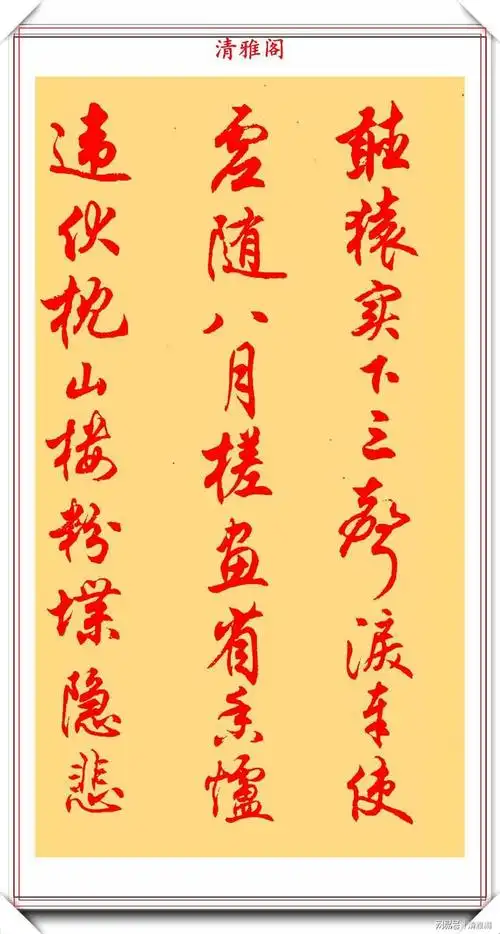 清雅阁
聽猿实下三聲淚奉使
虚随八月槎畫省香爐
违伏枕山楼粉堞隐悲
网易号 | 清雅阁